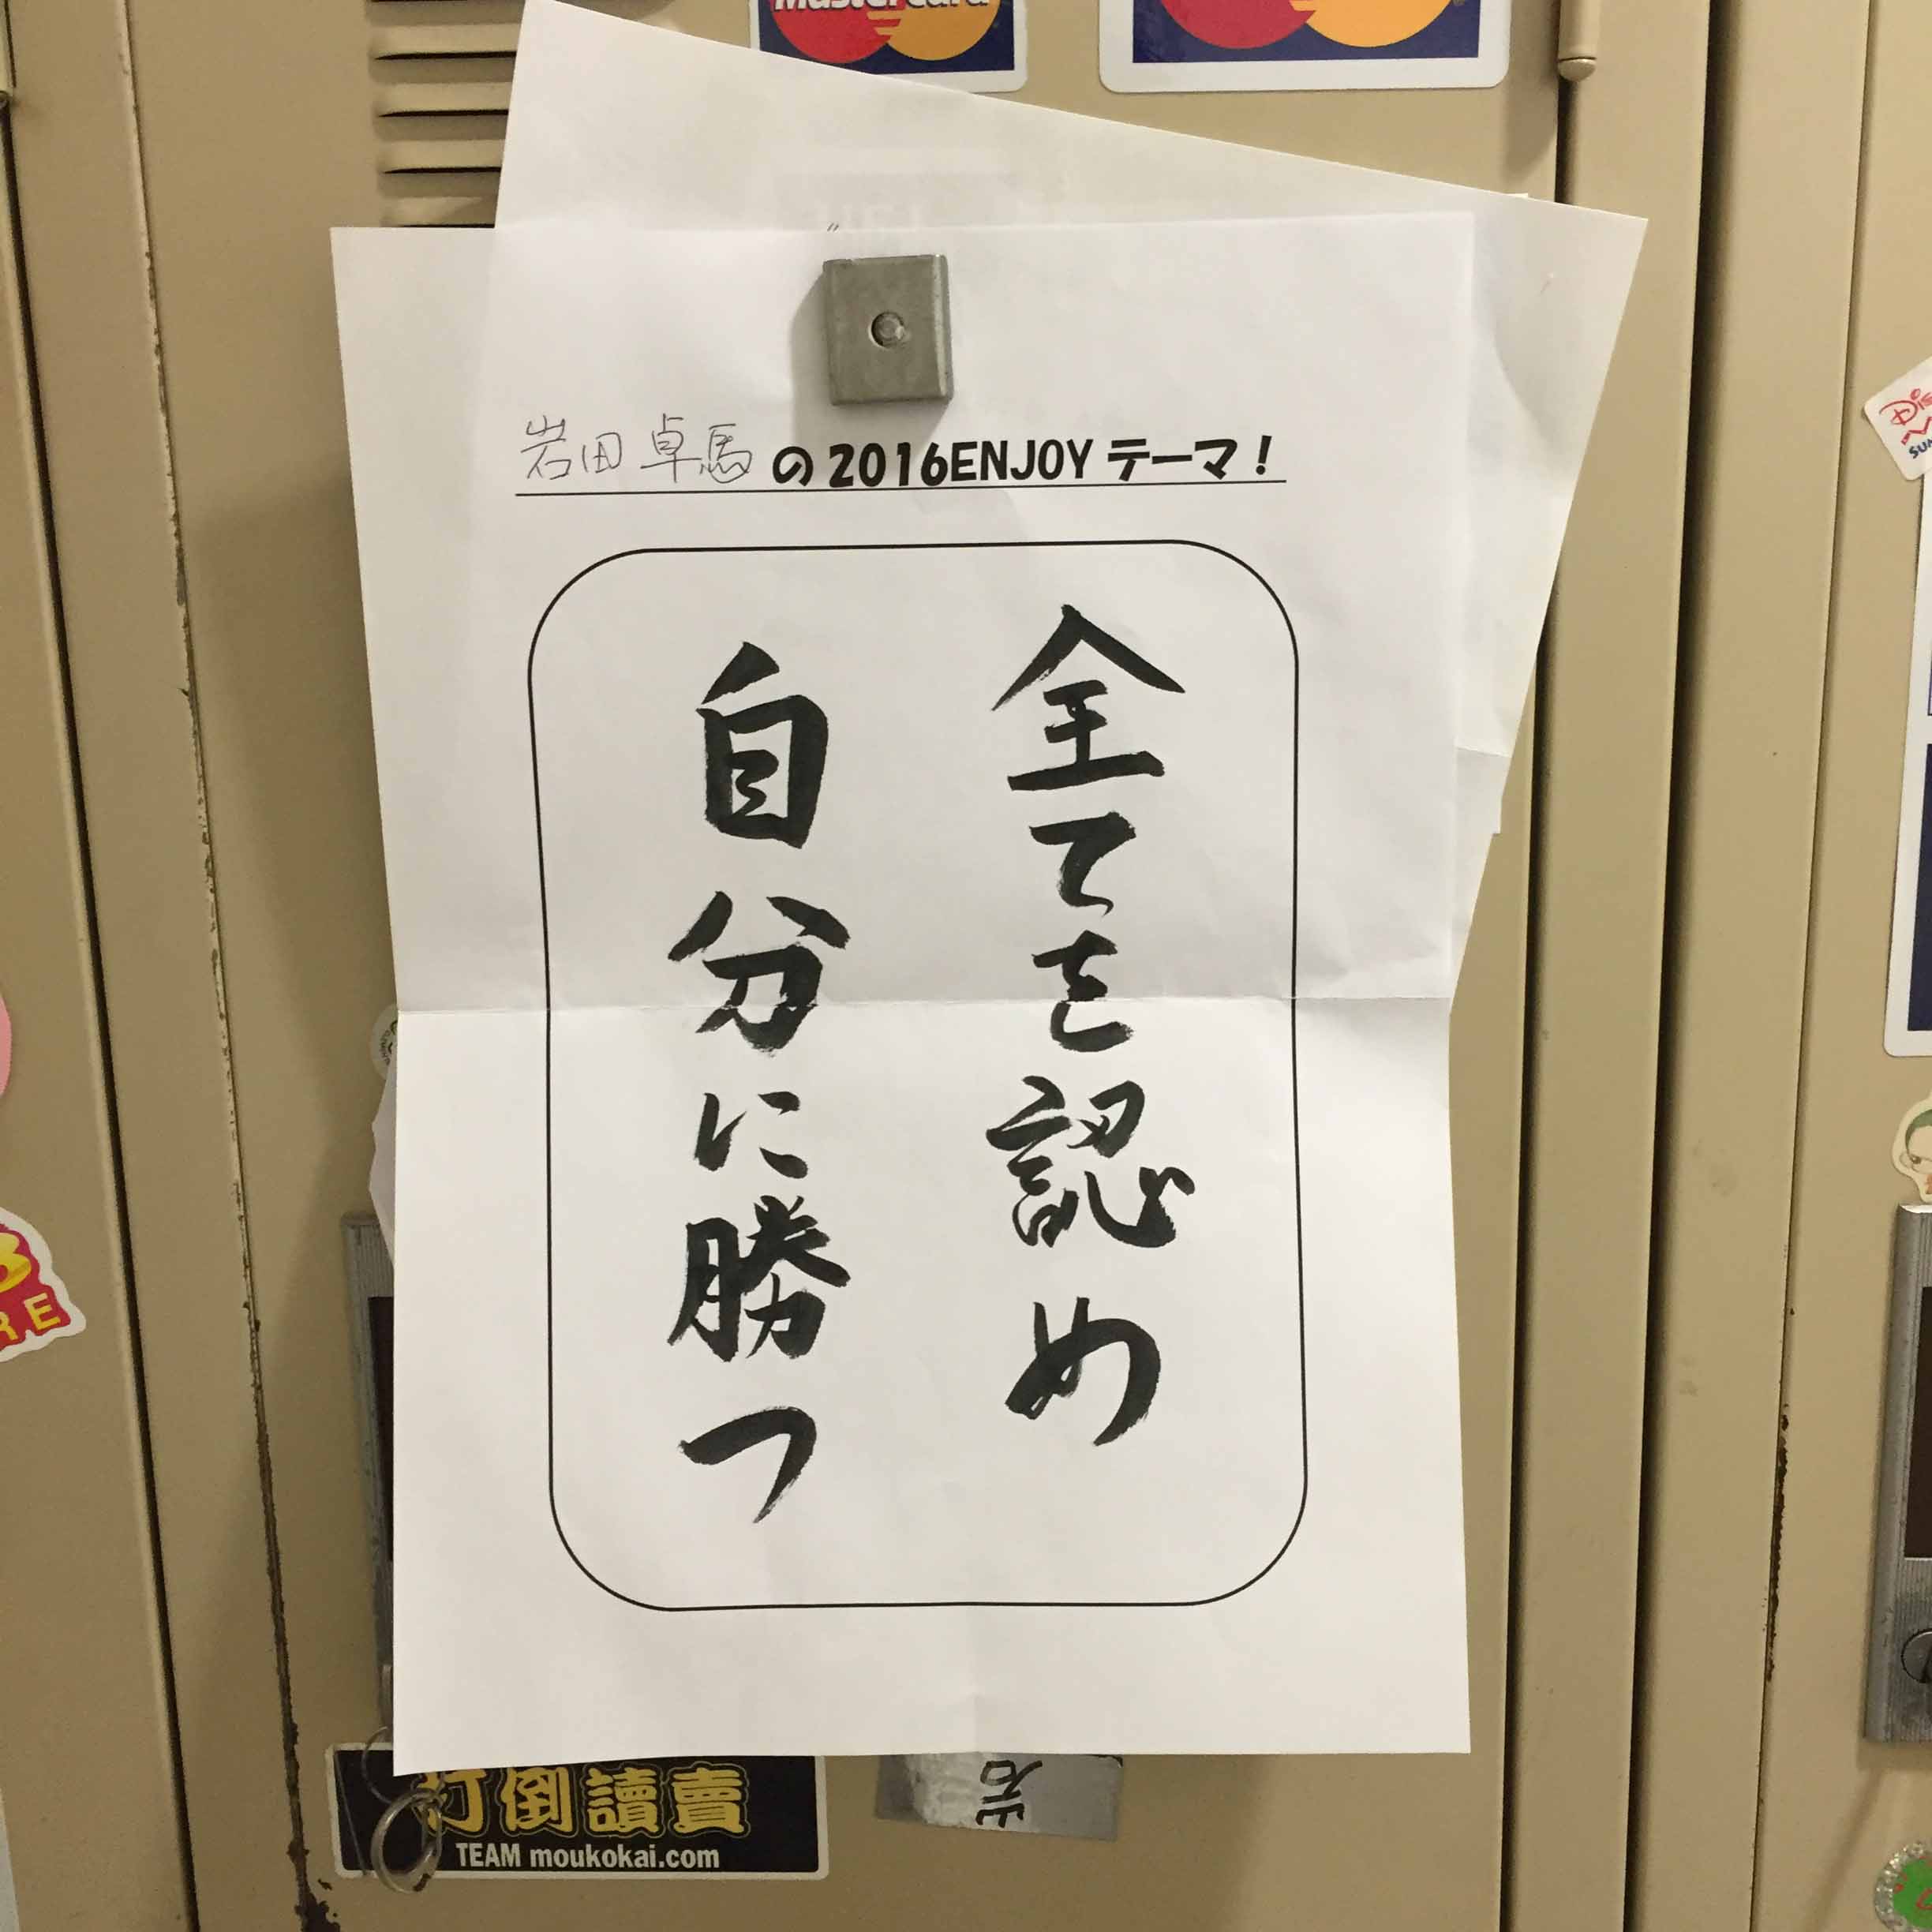 MasterCard
岩田卓馬の2016ENJOYテーマ！
全てを認め
自分に勝つ
打倒讀賣
TEAM moukokai.com
岩
RE